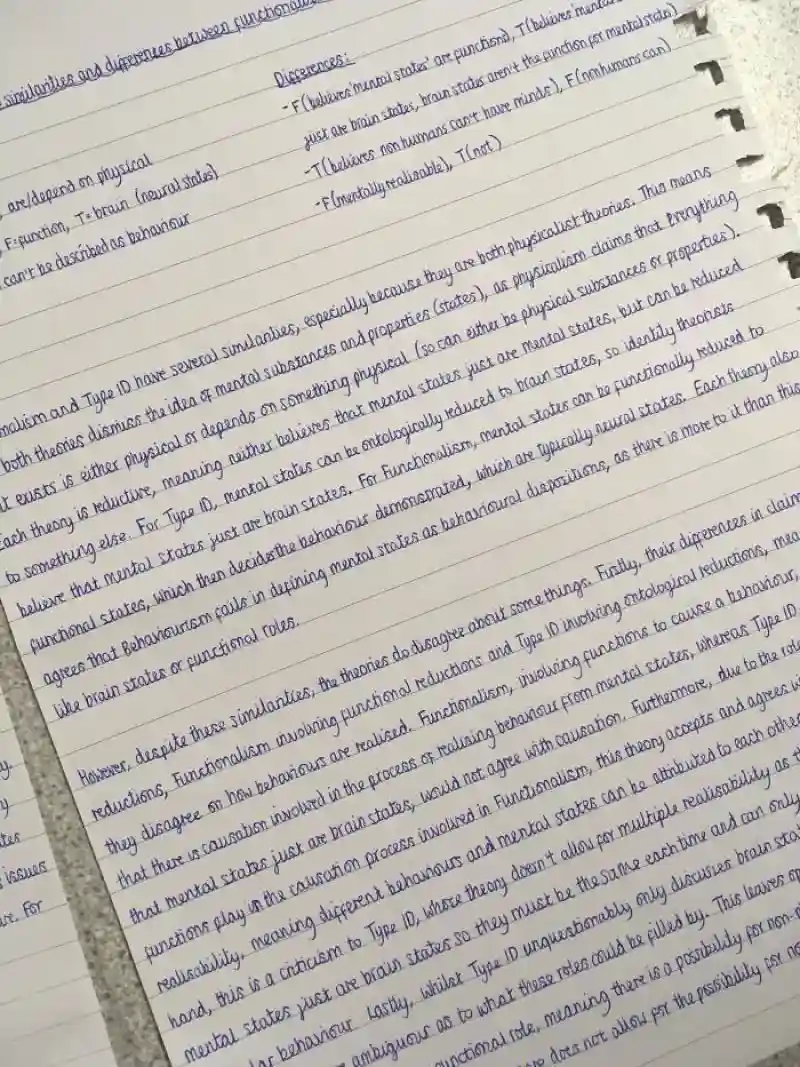 similarities and differences between functionalis
Differences:
-F(believes 'mental states' are functions), T(believes 'mental
just are brain states, brain states aren't the function for mental states)
-T(believes nonhumans can't have minds), F(nonhumans can)
-F(mentally realisable), T(not)
, are/depend on physical
F=function, T=brain (neural states)
can't be described as behaviour
nalism and Type ID have several similarities, especially because they are both physicalist theories. This means
both theories dismiss the idea of mental substances and properties (states), as physicalism claims that everything
t exists is either physical or depends on something physical (so can either be physical substances or properties).
Each theory is reductive, meaning neither believes that mental states just are mental states, but can be reduced
to something else. For Type ID, mental states can be ontologically reduced to brain states, so identity theorists
believe that mental states just are brain states. For Functionalism, mental states can be functionally reduced to
functional states, which then decides the behaviour demonstrated, which are typically neural states. Each theory also
agrees that Behaviourism fails in defining mental states as behavioural dispositions, as there is more to it than this
like brain states or functional roles.
However, despite these similarities, the theories do disagree about some things. Firstly, their differences in claim
reductions, Functionalism involving functional reductions and Type ID involving ontological reductions, mea
they disagree on how behaviours are realised. Functionalism, involving functions to cause a behaviour,
that there is causation involved in the process of realising behaviour from mental states, whereas Type ID
that mental states just are brain states, would not agree with causation. Furthermore, due to the role
functions play in the causation process involved in Functionalism, this theory accepts and agrees wi
realisability, meaning different behaviours and mental states can be attributed to each othe
hand, this is a criticism to Type ID, whose theory doesn't allow for multiple realisability as t
mental states just are brain states so they must be the same each time and can only
lar behaviour. Lastly, whilst Type ID unquestionably only discusses brain sta
ambiguous as to what these roles could be filled by. This leaves op
unctional role, meaning there is a possibility for non-
does not allow for the possibility for no
y
y
tes
issues
ure. For